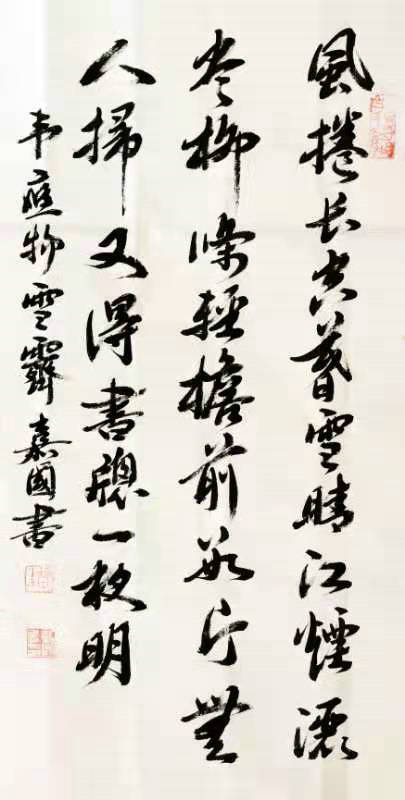 風捲長空暮雪晴江煙灑
尽柳條輕檐前數片無
人掃又得書牕一夜明
韦應物雪霽嘉國書